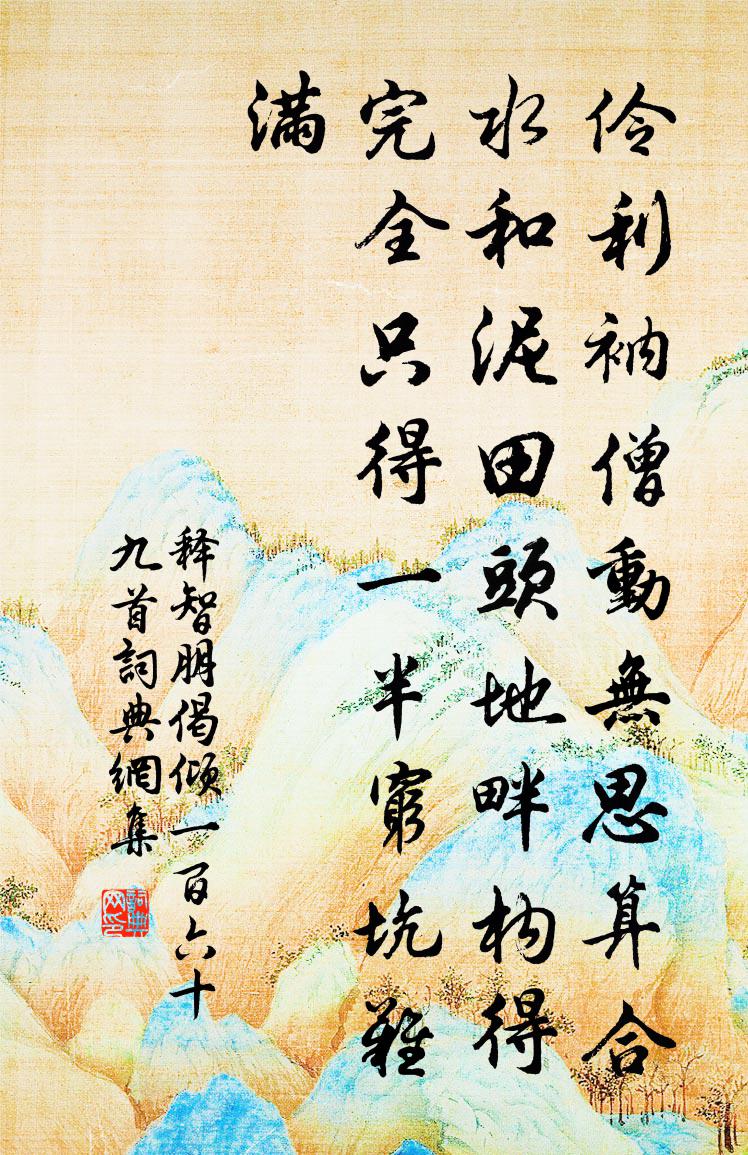 伶利衲僧動無思算合
水和泥田頭地畔构得
完全只得一半窮坑難
滿
释智朋偈倾一百六十
九首詞典網集
詞典网印